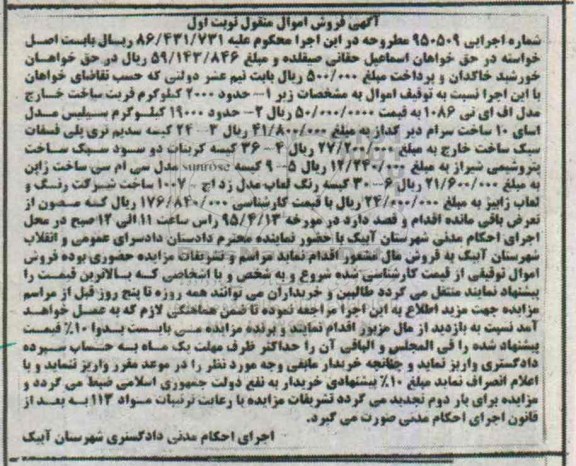 آگهی فروش اموال منقول نوبت اول
شماره اجرایی ۹۵۰۵۰۹ مطروحه در این اجرا محکوم علیه ۸۶/۴۳۱/۷۳۱ ریـال بابـت اصـل
خواسته در حق خواهان اسماعیل حقانی صیقلده و مبلغ ۵۹/۱۴۳/۸۴۶ ریال در حق خواهـان
خورشید خاکدان و پرداخت مبلغ ۵۰۰/۰۰۰ ریال بابت نیم عشر دولتی که حسب تقاضای خواهان
با این اجرا نسبت به توقیف اموال به مشخصات زیر ۱– حدود ۲۰۰۰ کیلوگرم فریت ساخت خـارج
مدل اف ای تی ۱۰۸۶ به قیمت ۵۰/۰۰۰/۰۰۰۰ ریال ۲– حدود ۱۹۰۰۰ کیلـوگرم سـیلیس مـدل
اسای ۱۰ ساخت سرام دیر گداز به مبلغ ۴۱/۸۰۰/۰۰۰ ریال ۳ – ۲۴ کیسه سدیم تری پلی فسفات
سبک ساخت خارج به مبلغ ۲۷/۲۰۰/۰۰۰ ریال ۴– ۳۶ کیسه کربنات دو سـود سـبک ساخـت
پتروشیمی شیراز به مبلغ ۱۲/۲۴۰/۰۰۰ ریال ۵– ۹ کیسه sunrose مدل سی ام سی ساخت ژاپن
به مبلغ ۲۱/۶۰۰/۰۰۰ ریال ۶– ۳۰ کیسه رنگ لعاب مدل زد اچ – ۱۰۰۷ ساخت شـرکت رنـگ و
لعاب زانیر به مبلغ ۲۴/۰۰۰/۰۰۰ ریال با قیمت کارشناسی ۱۷۶/۸۴۰/۰۰۰ ریال کـه مـصون از
تعرض باقی مانده اقدام و قصد دارد در مورخه ۹۵/۴/۱۳ راس ساعت ۱۱ الی ۱۲ صبح در محل
اجرای احکام مدنی شهرستان آبیک با حضور نماینده محترم دادستان دادسرای عمومی و انقلاب
شهرستان آبیک به فروش مال مشعور اقدام نماید مراسم و تشریفات مزایده حضوری بوده فروش
اموال توقیفی از قیمت کارشناسی شده شروع و به شخص و یا اشخاصی کـه بـالاترین قیمـت را
پیشنهاد نمایند منتقل می گردد طالبین و خریداران می توانند همه روزه تا پنج روز قبل از مراسم
مزایده جهت مزید اطلاع به این اجرا مراجعه نموده تا ضمن هماهنگی لازم که به عمـل خواهـد
آمد نسبت به بازدید از مال مزبور اقدام نمایند و برنده مزایده مـی بایسـت بـدوا ۱۰٪ قیمـت
پیشنهاد شده را فی المجلس و الباقی آن را حداکثر ظرف مهلت یک ماه بـه حسـاب سـپرده
دادگستری واریز نماید و چنانچه خریدار مابقی وجه مورد نظر را در موعد مقرر واریز ننماید و یا
اعلام انصراف نماید مبلغ ۱۰٪ پیشنهادی خریدار به نفع دولت جمهوری اسلامی ضبط می گردد و
مزایده برای بار دوم تجدید می گردد تشریفات مزایده با رعایت ترتیبات مـواد ۱۱۳ بـه بعـد از
قانون اجرای احکام مدنی صورت می گیرد.
اجرای احکام مدنی دادگستری شهرستان آبیک